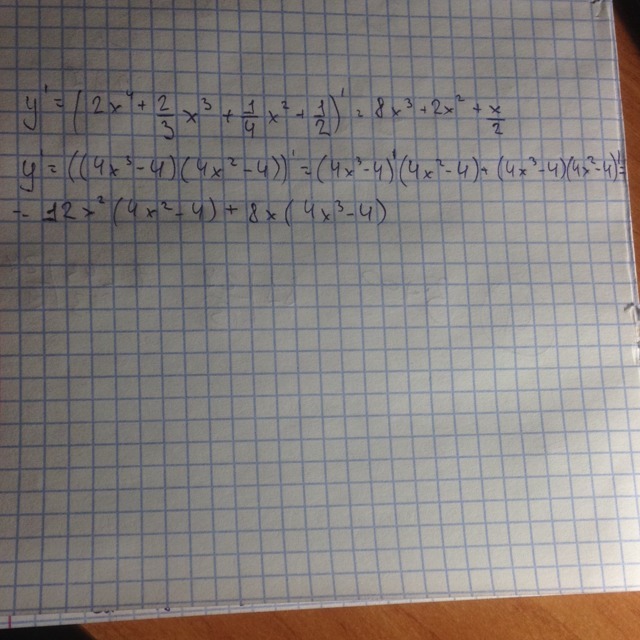 y' = (2x⁴ + 2/3 x³ + 1/4 x² + 1/2)' = 8x³ + 2x² + x/2
y' = (((4x³ - 4)(4x² - 4))' = (4x³ - 4)'(4x² - 4) + (4x³ - 4)(4x² - 4)' =
= 12x²(4x² - 4) + 8x(4x³ - 4)